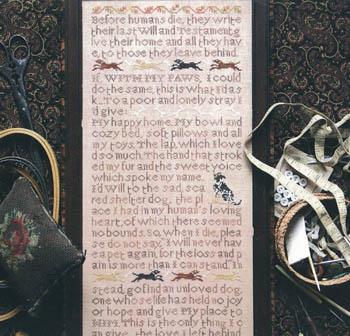 Before humans die, they write
their last Will and Testament g
ive their home and all they hav
e, to those they leave behind.
If, WITH MY PAWS, I could
do the same, this is what I'd as
k.. To a poor and lonely stray I
'd give:
My happy home. My bowl and
cozy bed, soft pillows and all
my toys. The lap, which I love
d so much. The hand that strok
ed my fur and the sweet voice
which spoke my name.
I'd Will to the sad, sca
red shelter dog, the pl
ace I had in my human's loving
heart, of which there seemed
no bounds. So, when I die, plea
se do not say, I will never hav
e a pet again, for the loss and p
ain is more than I can stand. In
stead, go find an unloved dog,
one whose life has held no joy
or hope and give MY place to
HIM. This is the only thing I c
an give.. the love I left behind